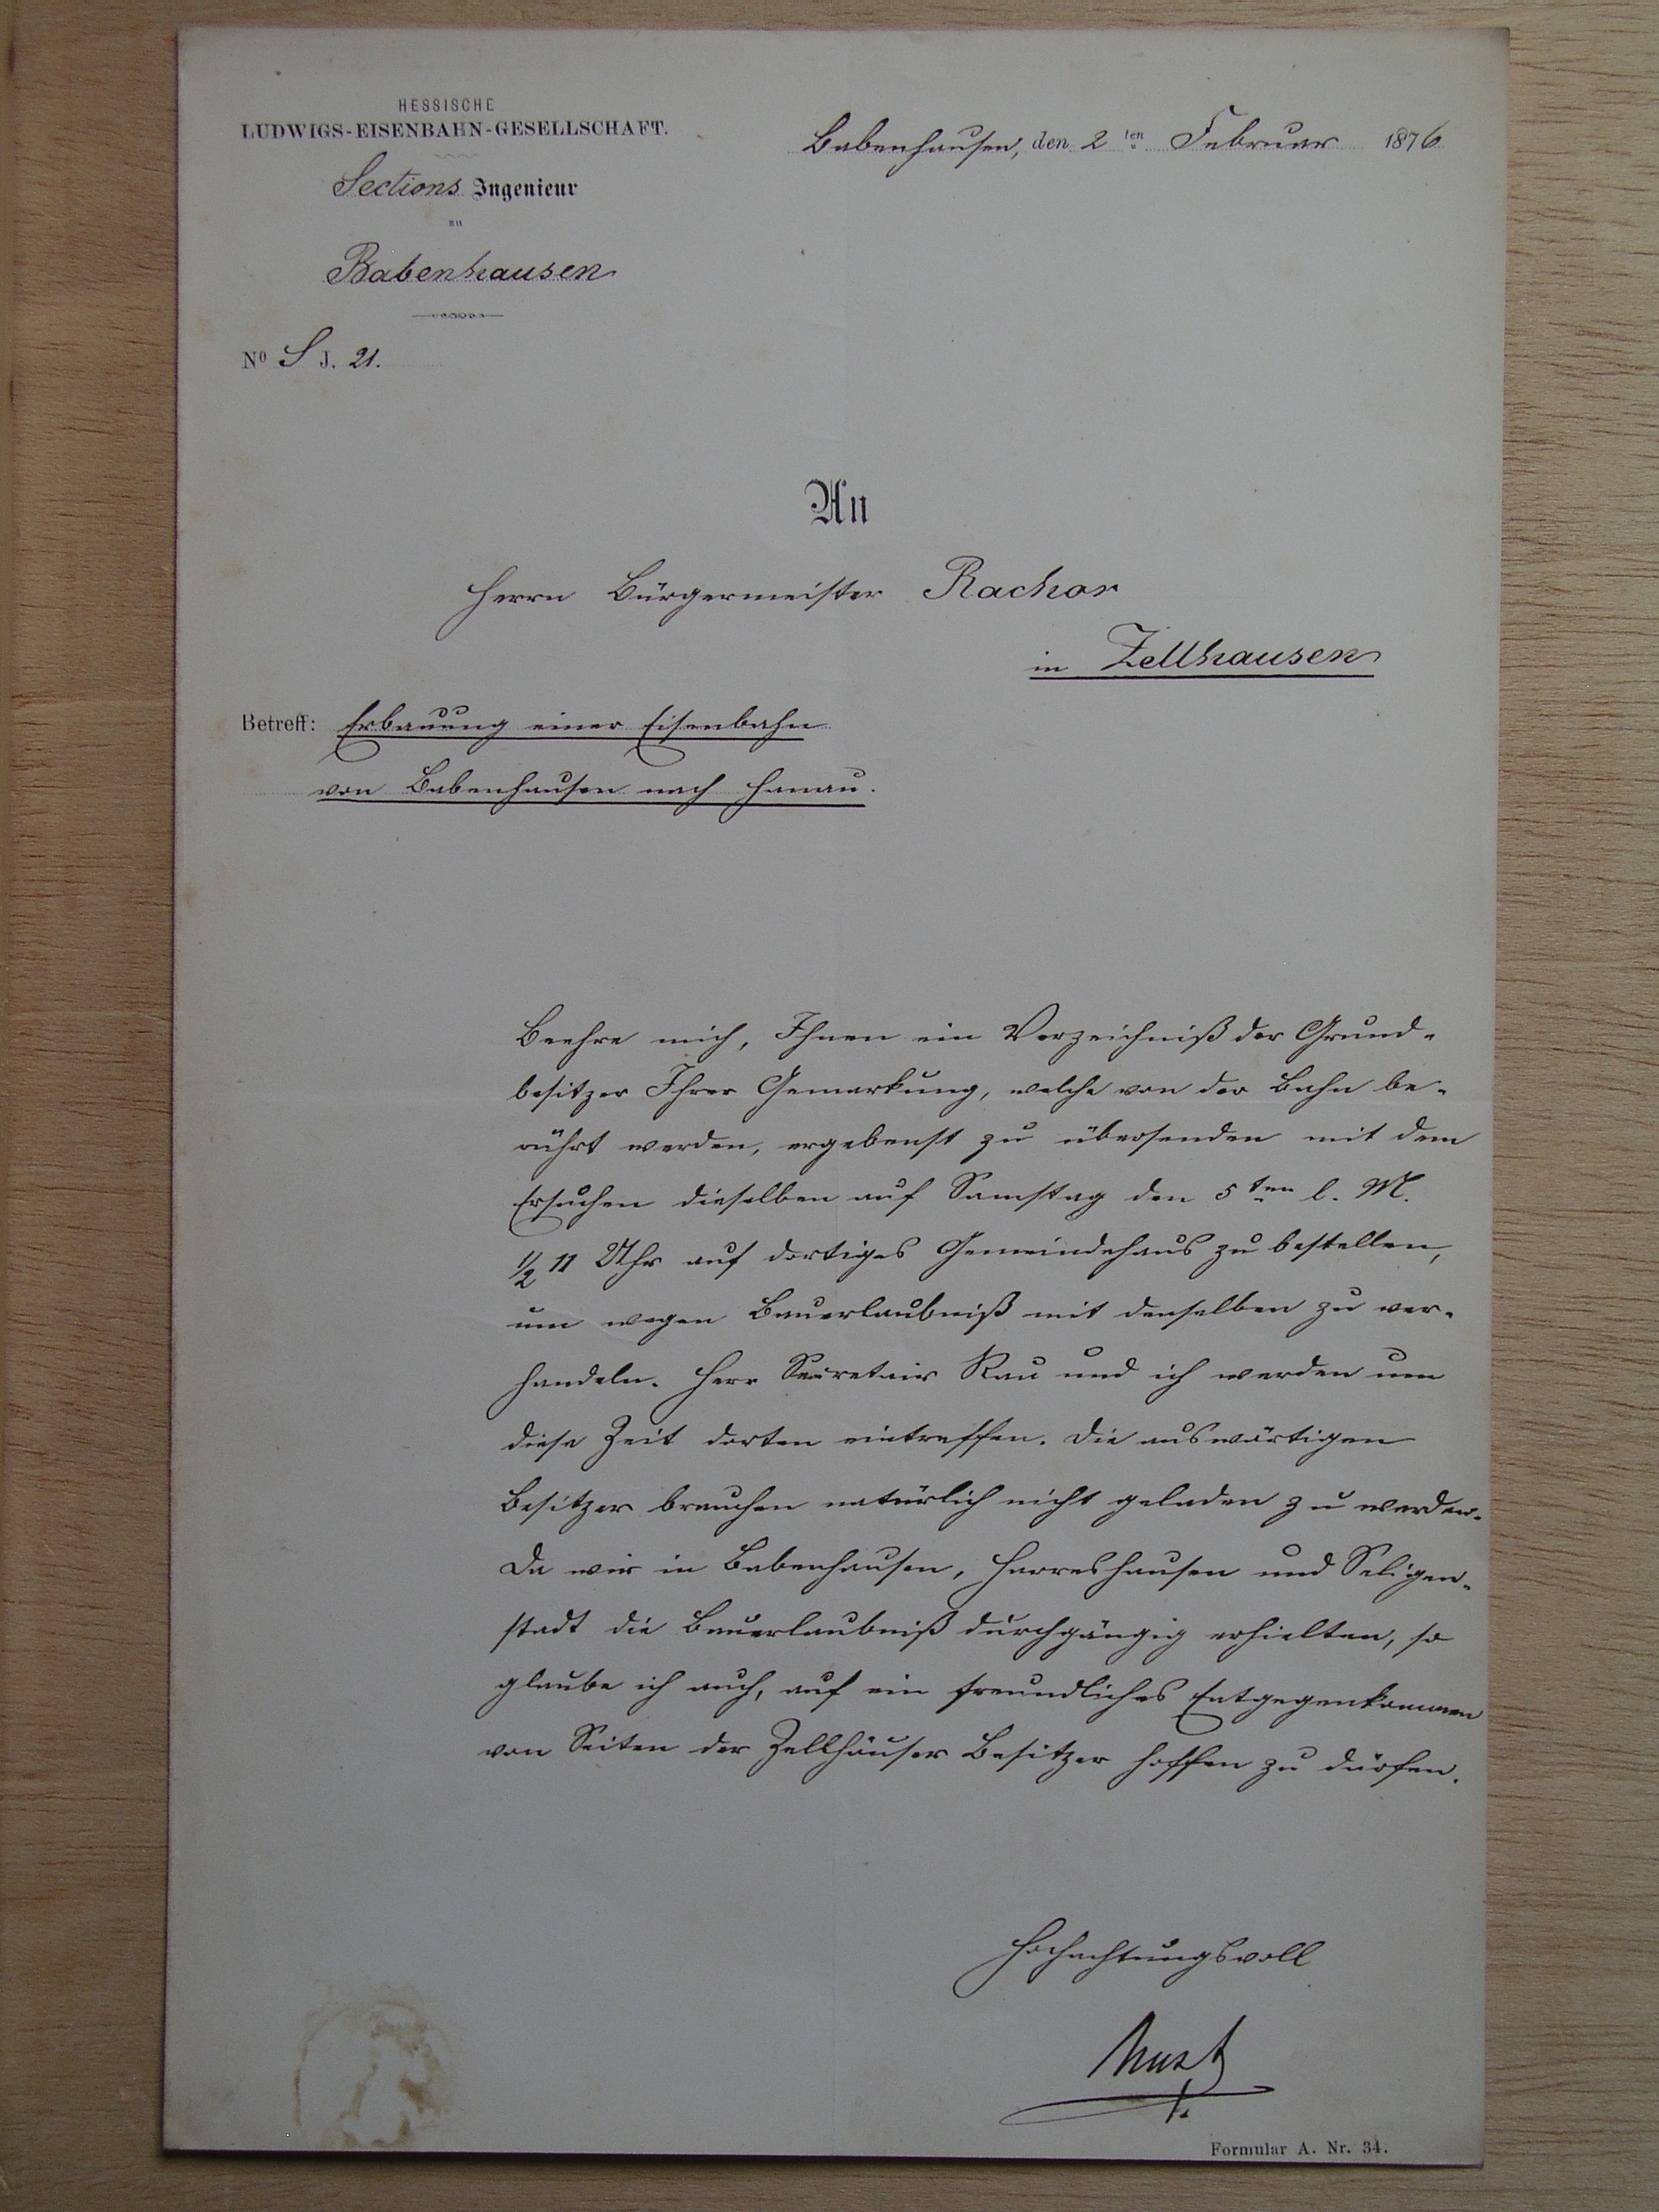 HESSISCHE
LUDWIGS-EISENBAHN-GESELLSCHAFT.
Sections Ingenieur
zu
Babenhausen
Nº S J. 21.
Babenhausen, den 2ten Februar 1876
An
Herrn Bürgermeister Rachor
in Zellhausen
Betreff: Erbauung einer Eisenbahn
von Babenhausen nach Hanau.
Beehre mich, Ihnen ein Verzeichniß der Grund-
besitzer Ihrer Gemarkung, welche von der Bahn be-
rührt werden, ergebenst zu übersenden mit dem
Ersuchen dieselben auf Samstag den 5ten l. M.
½ 11 Uhr auf dortiges Gemeindehaus zu bestellen,
um wegen Bauerlaubniß mit denselben zu ver-
handeln. Herr Secretair Rau und ich werden um
diese Zeit dorten eintreffen. Die auswärtigen
Besitzer brauchen natürlich nicht geladen zu werden.
Da wir in Babenhausen, Harreshausen und Seligen-
stadt die Bauerlaubniß durchgängig erhielten, so
glaube ich auch, auf ein freundliches Entgegenkommen
von Seiten der Zellhäuser Besitzer hoffen zu dürfen.
Hochachtungsvoll
Formular A. Nr. 34.